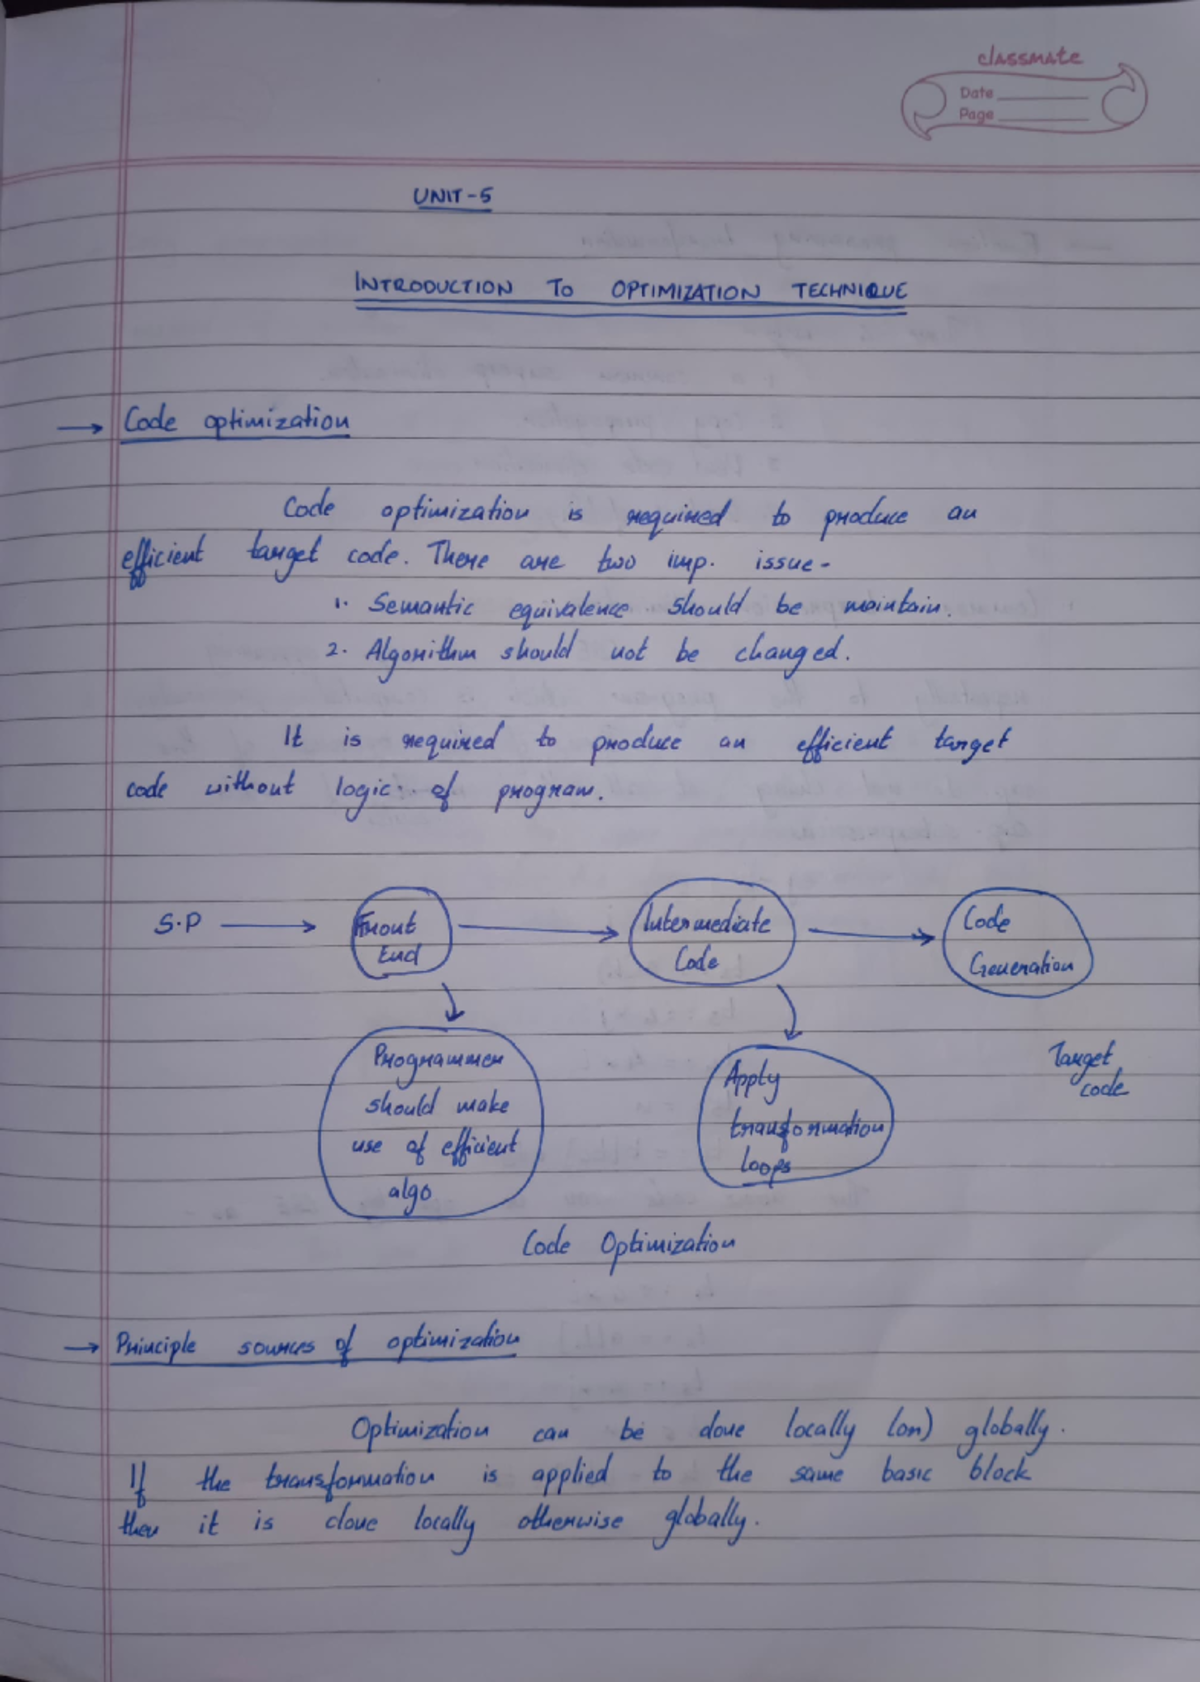 classmate
Date
Page
UNIT-5
INTRODUCTION TO OPTIMIZATION TECHNIQUE
→ Code optimization
Code optimization is required to produce an
efficient target code. There are two imp. issue-
1. Semantic equivalence should be maintain.
2. Algorithm should not be changed.
It is required to produce an efficient target
code without logic of program.
S.P → Front End → Intermediate Code → Code Generation
Programmer
should make
use of efficient
algo
Apply
transformation
loops
Target
code
Code Optimization
→ Principle sources of optimization
Optimization can be done locally (or) globally.
If the transformation is applied to the same basic block
then it is done locally otherwise globally.